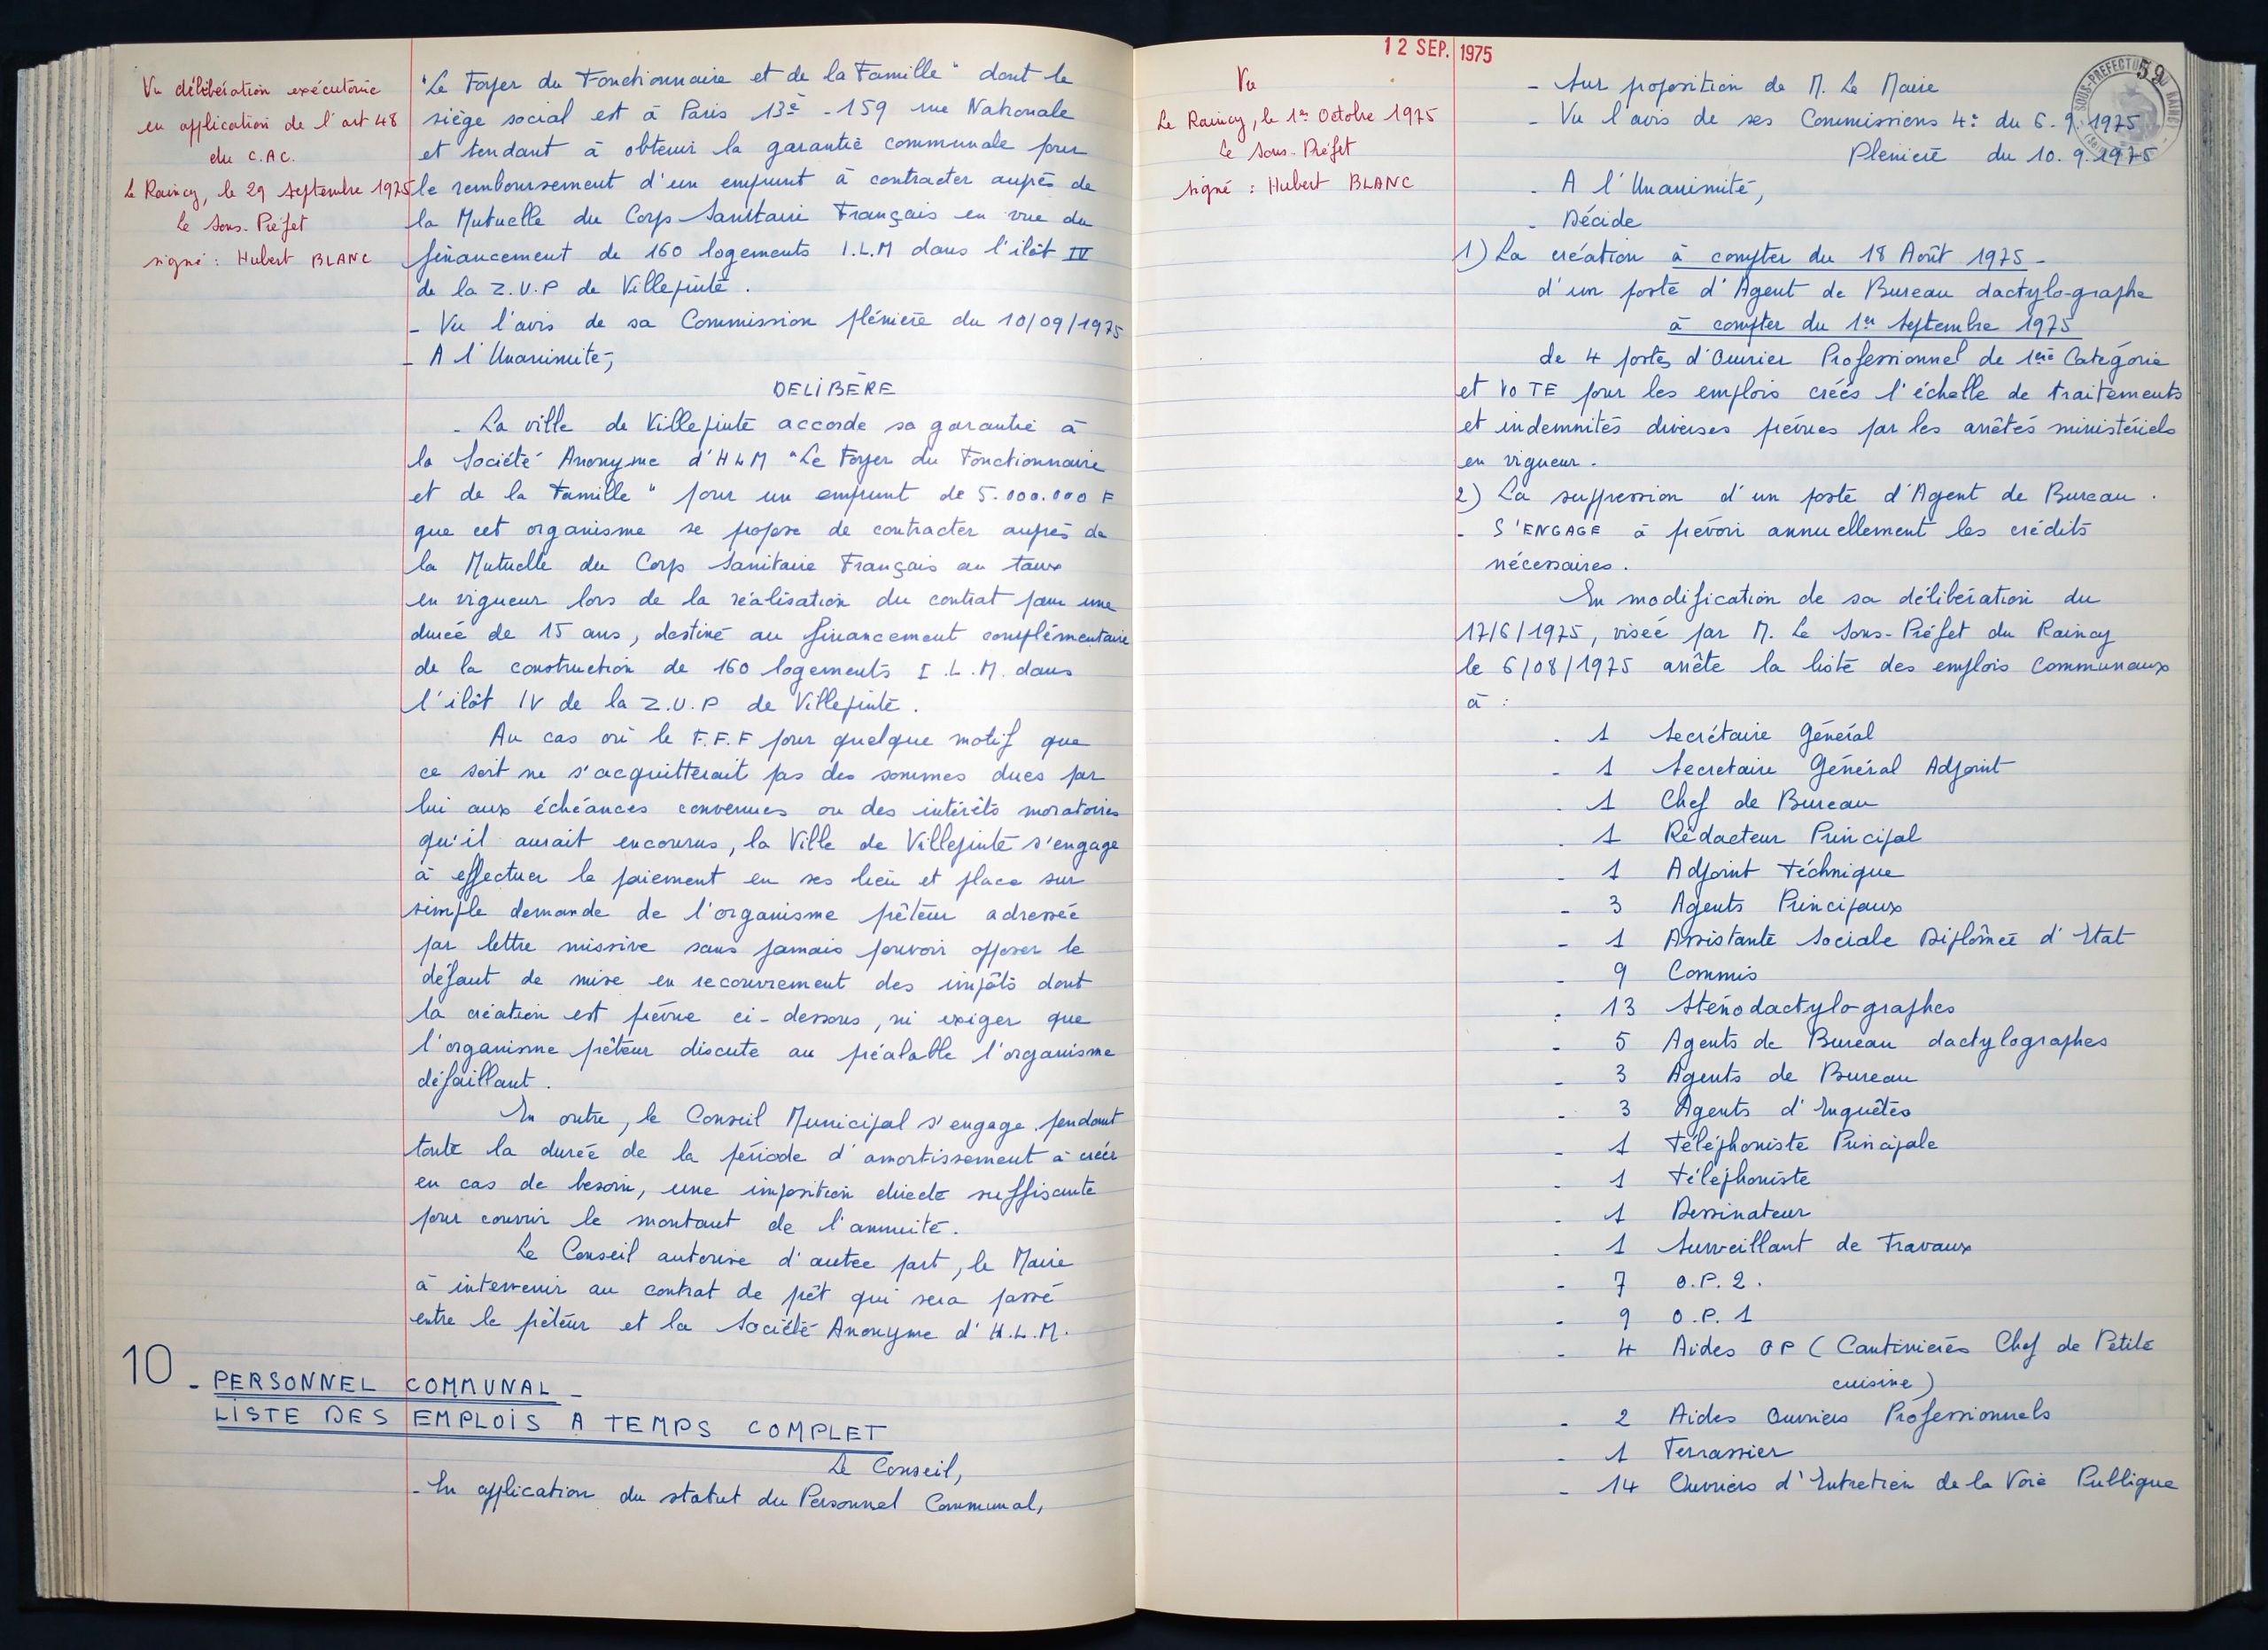 Vu délibération exécutoire
en application de l'art 48
du C.A.C.
Le Raincy, le 29 Septembre 1975
Le Sous-Préfet
signé : Hubert BLANC
"Le Foyer du Fonctionnaire et de la Famille" dont le
siège social est à Paris 13è - 159 rue Nationale
et tendant à obtenir la garantie communale pour
le remboursement d'un emprunt à contracter auprès de
la Mutuelle du Corps Sanitaire Français en vue du
financement de 160 logements I.L.M dans l'ilôt IV
de la Z.U.P de Villepinte.
- Vu l'avis de sa Commission plénière du 10/09/1975
- A l'Unanimité,
DELIBÈRE
- La ville de Villepinte accorde sa garantie à
la Société Anonyme d'HLM "Le Foyer du Fonctionnaire
et de la Famille" pour un emprunt de 5.000.000 F
que cet organisme se propose de contracter auprès de
la Mutuelle du Corps Sanitaire Français au taux
en vigueur lors de la réalisation du contrat pour une
durée de 15 ans, destiné au financement complémentaire
de la construction de 160 logements I.L.M. dans
l'ilôt IV de la Z.U.P de Villepinte.
Au cas où le F.F.F pour quelque motif que
ce soit ne s'acquitterait pas des sommes dues par
lui aux échéances convenues ou des intérêts moratoires
qu'il aurait encourus, la Ville de Villepinte s'engage
à effectuer le paiement en ses lieu et place sur
simple demande de l'organisme prêteur adressée
par lettre missive sans jamais pouvoir opposer le
défaut de mise en recouvrement des impôts dont
la création est prévue ci-dessous, ni exiger que
l'organisme prêteur discute au préalable l'organisme
défaillant.
En outre, le Conseil Municipal s'engage pendant
toute la durée de la période d'amortissement à créer
en cas de besoin, une imposition directe suffisante
pour couvrir le montant de l'annuité.
Le Conseil autorise d'autre part, le Maire
à intervenir au contrat de prêt qui sera passé
entre le prêteur et la Société Anonyme d'H.L.M.
10 - PERSONNEL COMMUNAL -
LISTE DES EMPLOIS A TEMPS COMPLET
Le Conseil,
- En application du statut du Personnel Communal,
12 SEP. 1975
59
SOUS-PREFECTURE DU RAINCY
Vu
Le Raincy, le 1er Octobre 1975
Le Sous-Préfet
signé : Hubert BLANC
- Sur proposition de M. Le Maire
- Vu l'avis de ses Commissions 4è du 6.9.1975
Plénière du 10.9.1975
- A l'Unanimité,
- Décide
1) La création à compter du 18 Août 1975 -
d'un poste d'Agent de Bureau dactylo-graphe
à compter du 1er Septembre 1975
de 4 postes d'Ouvrier Professionnel de 1ère Catégorie
et VOTE pour les emplois créés l'échelle de traitements
et indemnités diverses prévues par les arrêtés ministériels
en vigueur.
2) La suppression d'un poste d'Agent de Bureau.
- S'ENGAGE à prévoir annuellement les crédits
nécessaires.
En modification de sa délibération du
17/6/1975, visée par M. Le Sous-Préfet du Raincy
le 6/08/1975 arrête la liste des emplois communaux
à :
- 1 Secrétaire Général
- 1 Secretaire Général Adjoint
- 1 Chef de Bureau
- 1 Rédacteur Principal
- 1 Adjoint Téchnique
- 3 Agents Principaux
- 1 Assistante Sociale Diplômée d'Etat
- 9 Commis
- 13 Sténodactylo-graphes
- 5 Agents de Bureau dactylographes
- 3 Agents de Bureau
- 3 Agents d'Enquêtes
- 1 Téléphoniste Principale
- 1 Téléphoniste
- 1 Dessinateur
- 1 Surveillant de Travaux
- 7 O.P.2.
- 9 O.P.1
- 4 Aides OP (Cantinières Chef de Petite
cuisine)
- 2 Aides Ouvriers Professionnels
- 1 Terrassier
- 14 Ouvriers d'Entretien de la Voie Publique